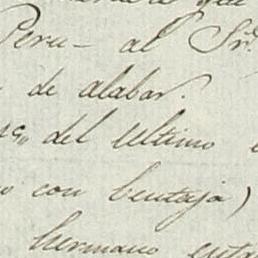 que
Peru - al Sr.
de alabar.
del ultimo
con bentaja)
hermano